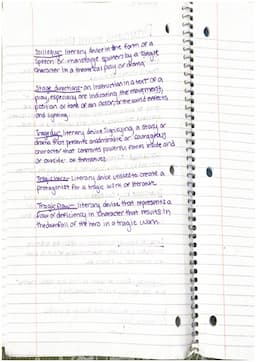 Soliloquy- literary device in the form of a
speech or monologue spoken by a single
character in a theatrical play or drama.
Stage directions- an instruction in a text of a
play, especially one indicating the movement,
position or tone of an actor, or the sound effects
and lighting.
Tragedy- literary device signifying a story or
drama that presents an admirable or courageous
character that confronts powerful forces inside and
or outside of themselves.
Tragic hero- Literary device utilized to create a
protagonist for a tragic work of literature.
Tragic flaw- literary device that represents a
flaw or deficiency in character that results in
the downfall of the hero in a tragic work.